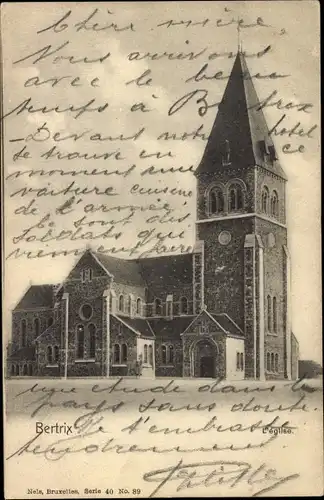 Chère mère
Nous arrivons
avec le beau
temps à Bertrix
Devant notre hôtel
se trouve en ce
moment une
voiture cuisine
de l'armée
Ce sont des
soldats qui
viennent
dans le
pays sans doute.
Je t'embrasse
tendrement
Bertrix
L'église.
Nels, Bruxelles, Serie 40 No. 89